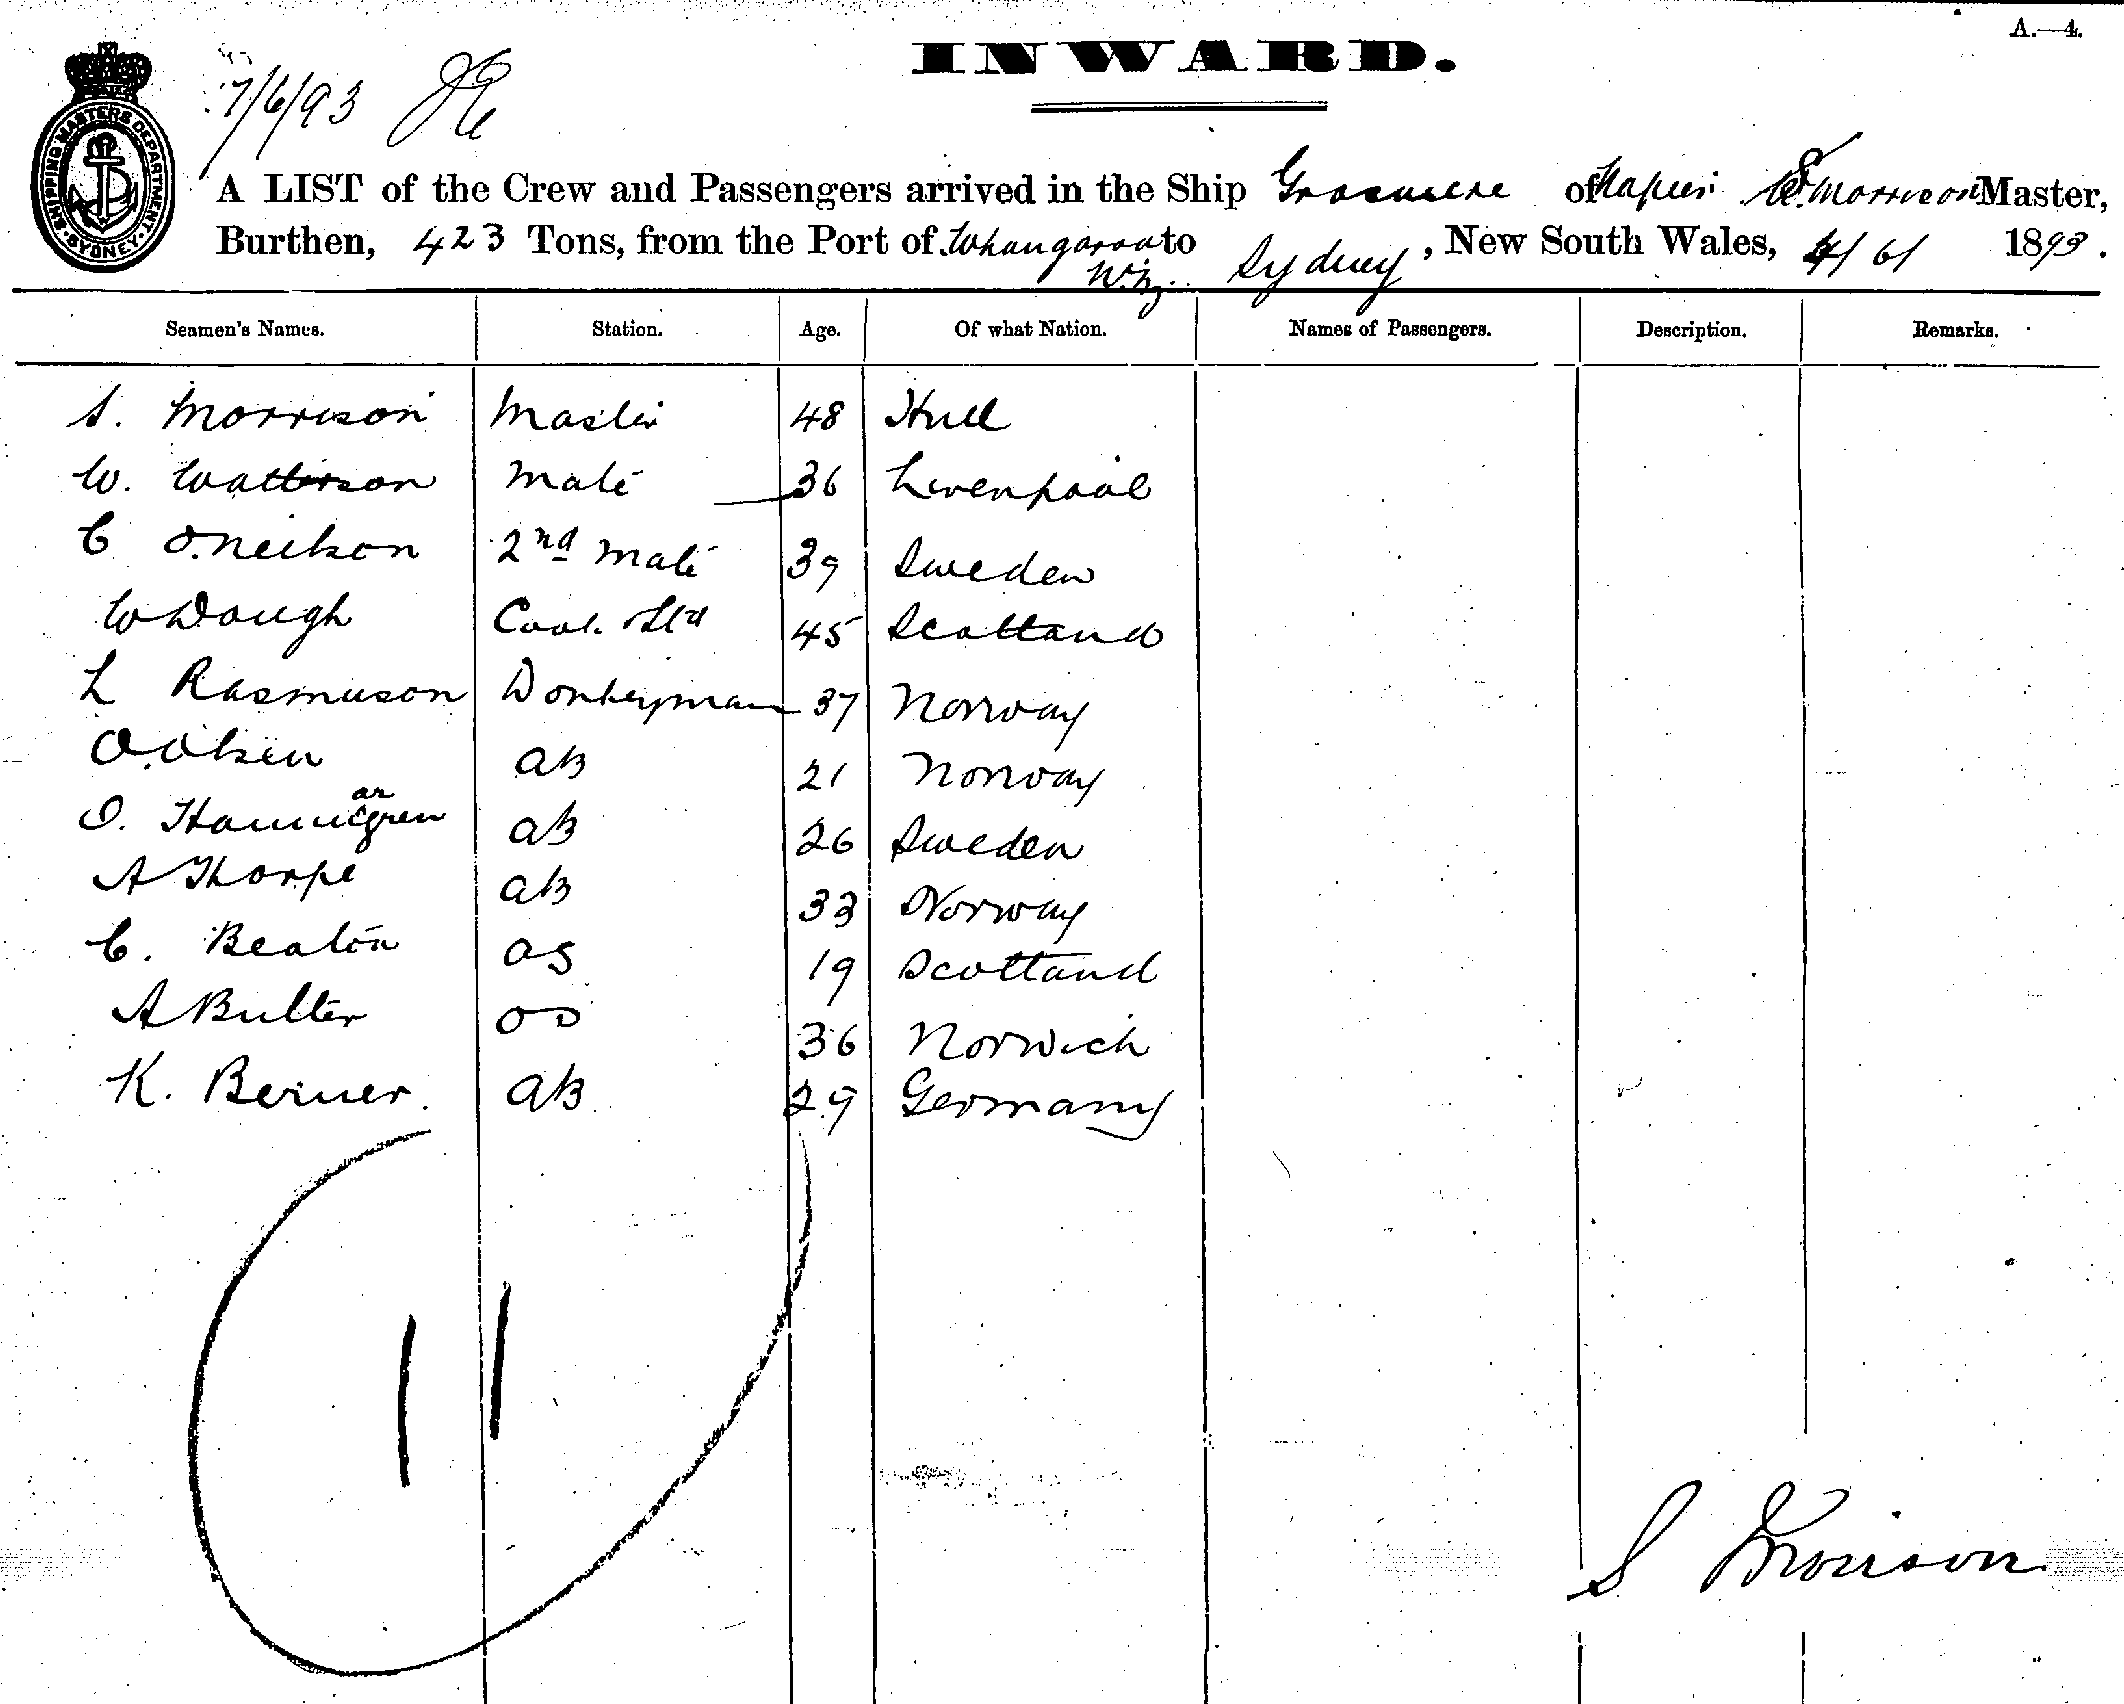 A.—4.
INWARD.
SHIPPING MASTERS DEPARTMENT. SYDNEY
7/6/93
A LIST of the Crew and Passengers arrived in the Ship Grasmere of Napier S. Morrison Master,
Burthen, 423 Tons, from the Port of Whangaroa N.Z. to Sydney, New South Wales, 4/6/ 1893.
Seamen's Names. Station. Age. Of what Nation. Names of Passengers. Description. Remarks.
S. Morrison Master 48 Hull
W. Watterson Mate 36 Liverpool
C O.Neilson 2nd Mate 39 Sweden
W Waugh Cook & Std 45 Scotland
L Rasmuson Donkeyman 37 Norway
O. Olsen AB 21 Norway
O. Hammargren AB 26 Sweden
A Thorpe AB 33 Norway
C. Beaton OS 19 Scotland
A Butter OS 36 Norwich
K. Berner AB 29 Germany
11
S Morrison